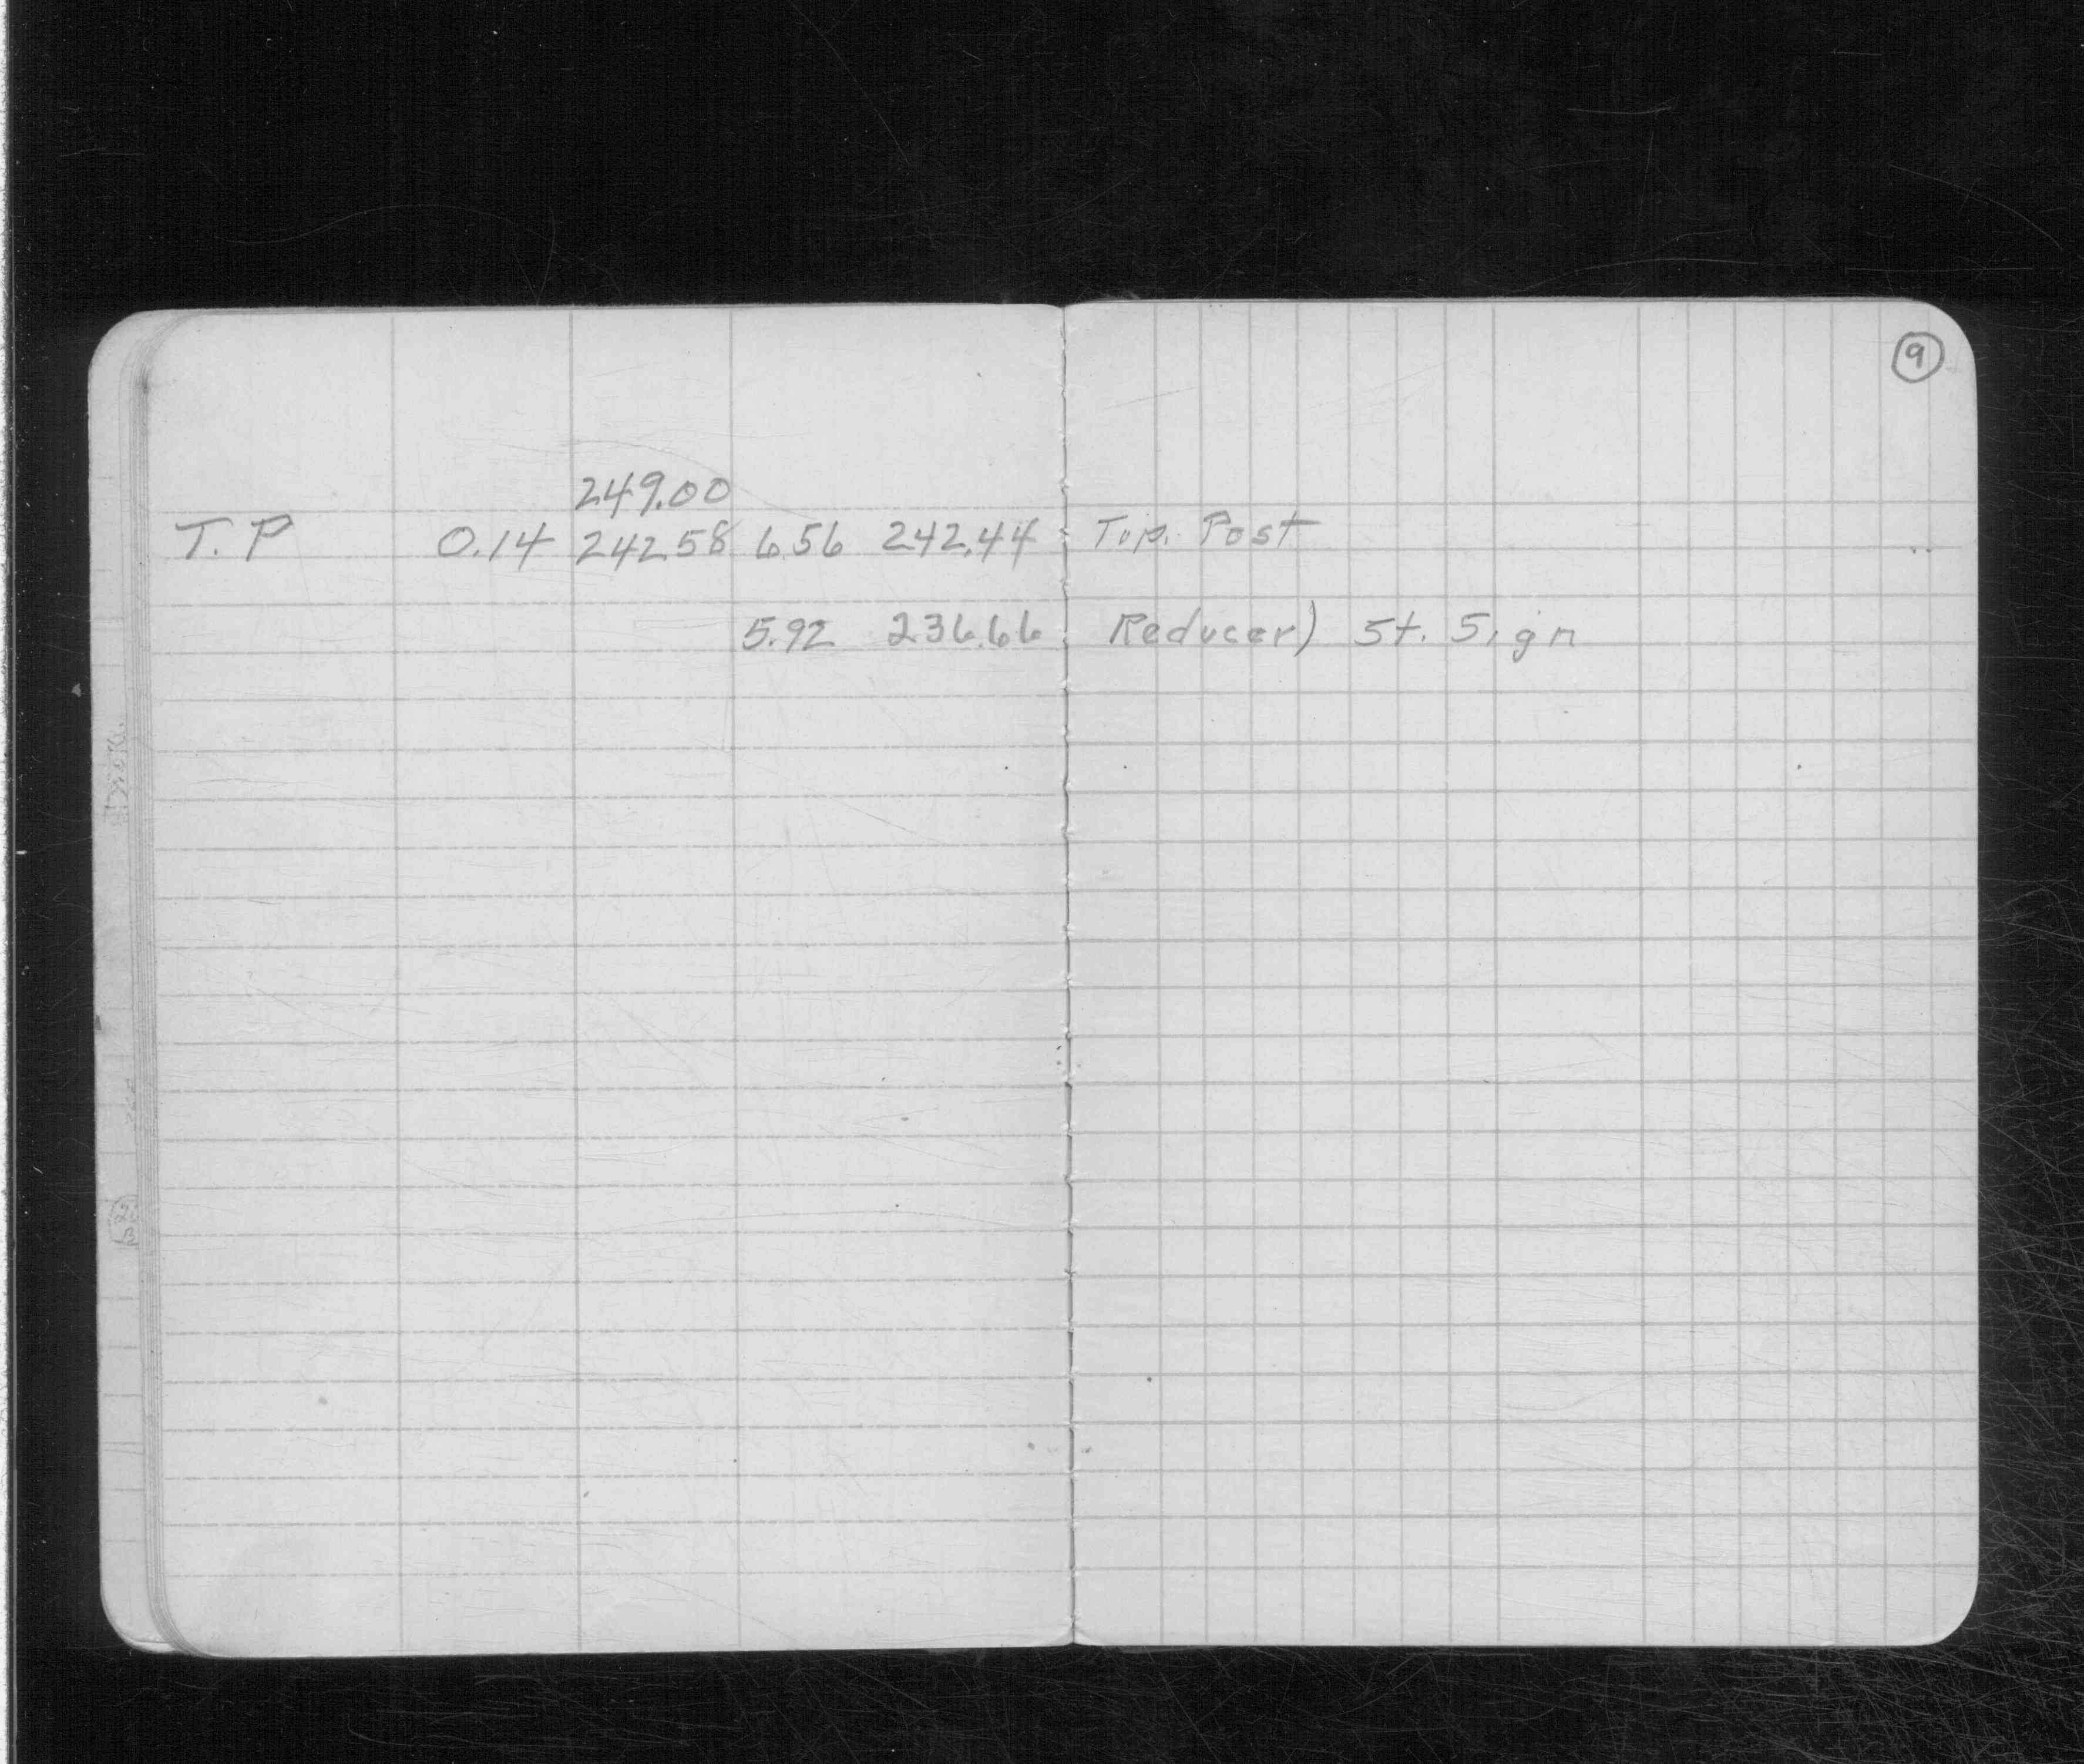 9
249.00
T.P 0.14 242.58 6.56 242.44 Top. Post
5.92 236.66 Reducer) St. Sign